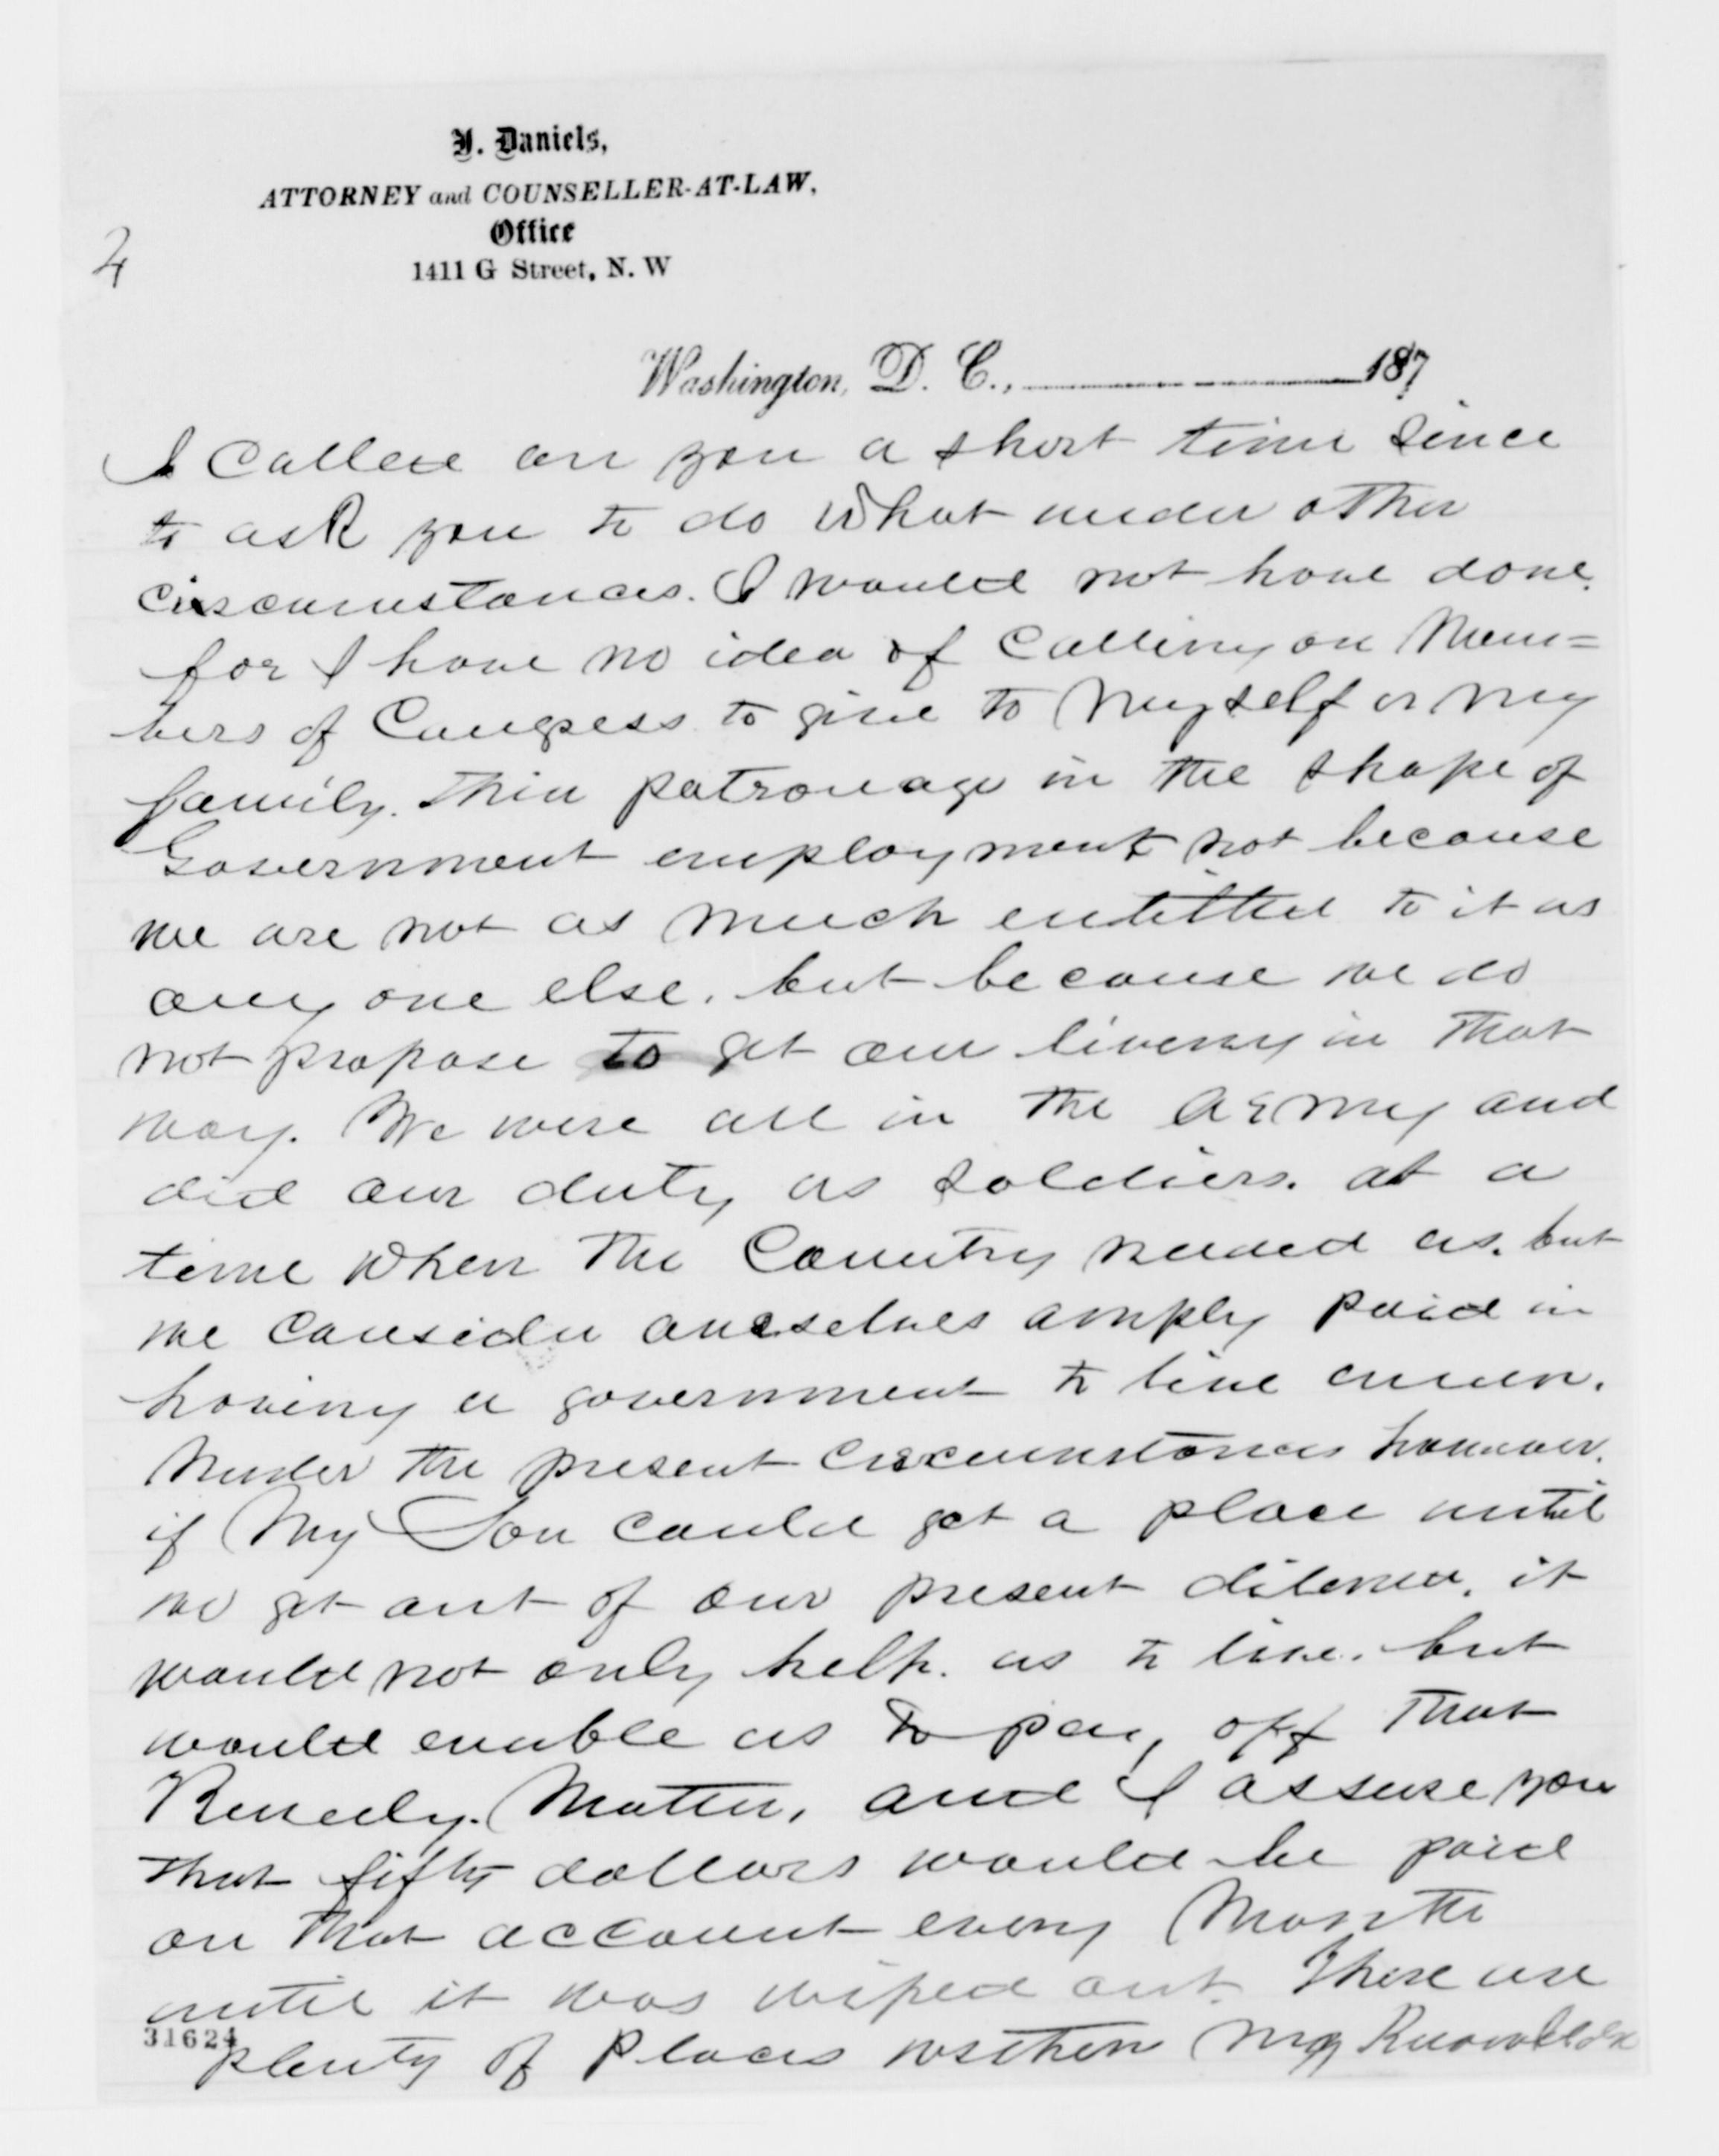 J. Daniels,
ATTORNEY and COUNSELLER-AT-LAW,
Office
1411 G Street, N. W
2
Washington, D. C., 187
I called on you a short time since
to ask you to do what under other
circumstances. I would not have done.
for I have no idea of calling on Mem=
bers of Congress to give to myself or my
family. their patronage in the shape of
Government employment not because
we are not as much entitled to it as
any one else. but because we do
not propose to get our living in that
way. We were all in the army and
did our duty as soldiers. at a
time when the Country needed us. but
we consider ourselves amply paid in
having a government to live under.
Under the present circumstances however.
if My Son could get a place until
we get out of our present dilema. it
would not only help. us to live. but
would enable us to pay off that
Matter, and I assure you
that fifty dollars would be paid
on that account every Month
until it was wiped out. There are
31624
plenty of places within my